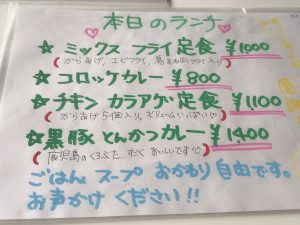 本日のランチ
☆ ミックス フライ定食 ¥1000
(からあげ、エビフライ、鳥むね肉フライ入り)
☆ コロッケカレー ¥800
☆ チキン カラアゲ定食 ¥1100
(からあげ5個入り。ボリュームいっぱい♡)
☆ 黒豚とんかつカレー ¥1400
(鹿児島のくろぶた、すごく おいしいです♡)
ごはん スープ おかわり自由です。
お声かけ ください!!